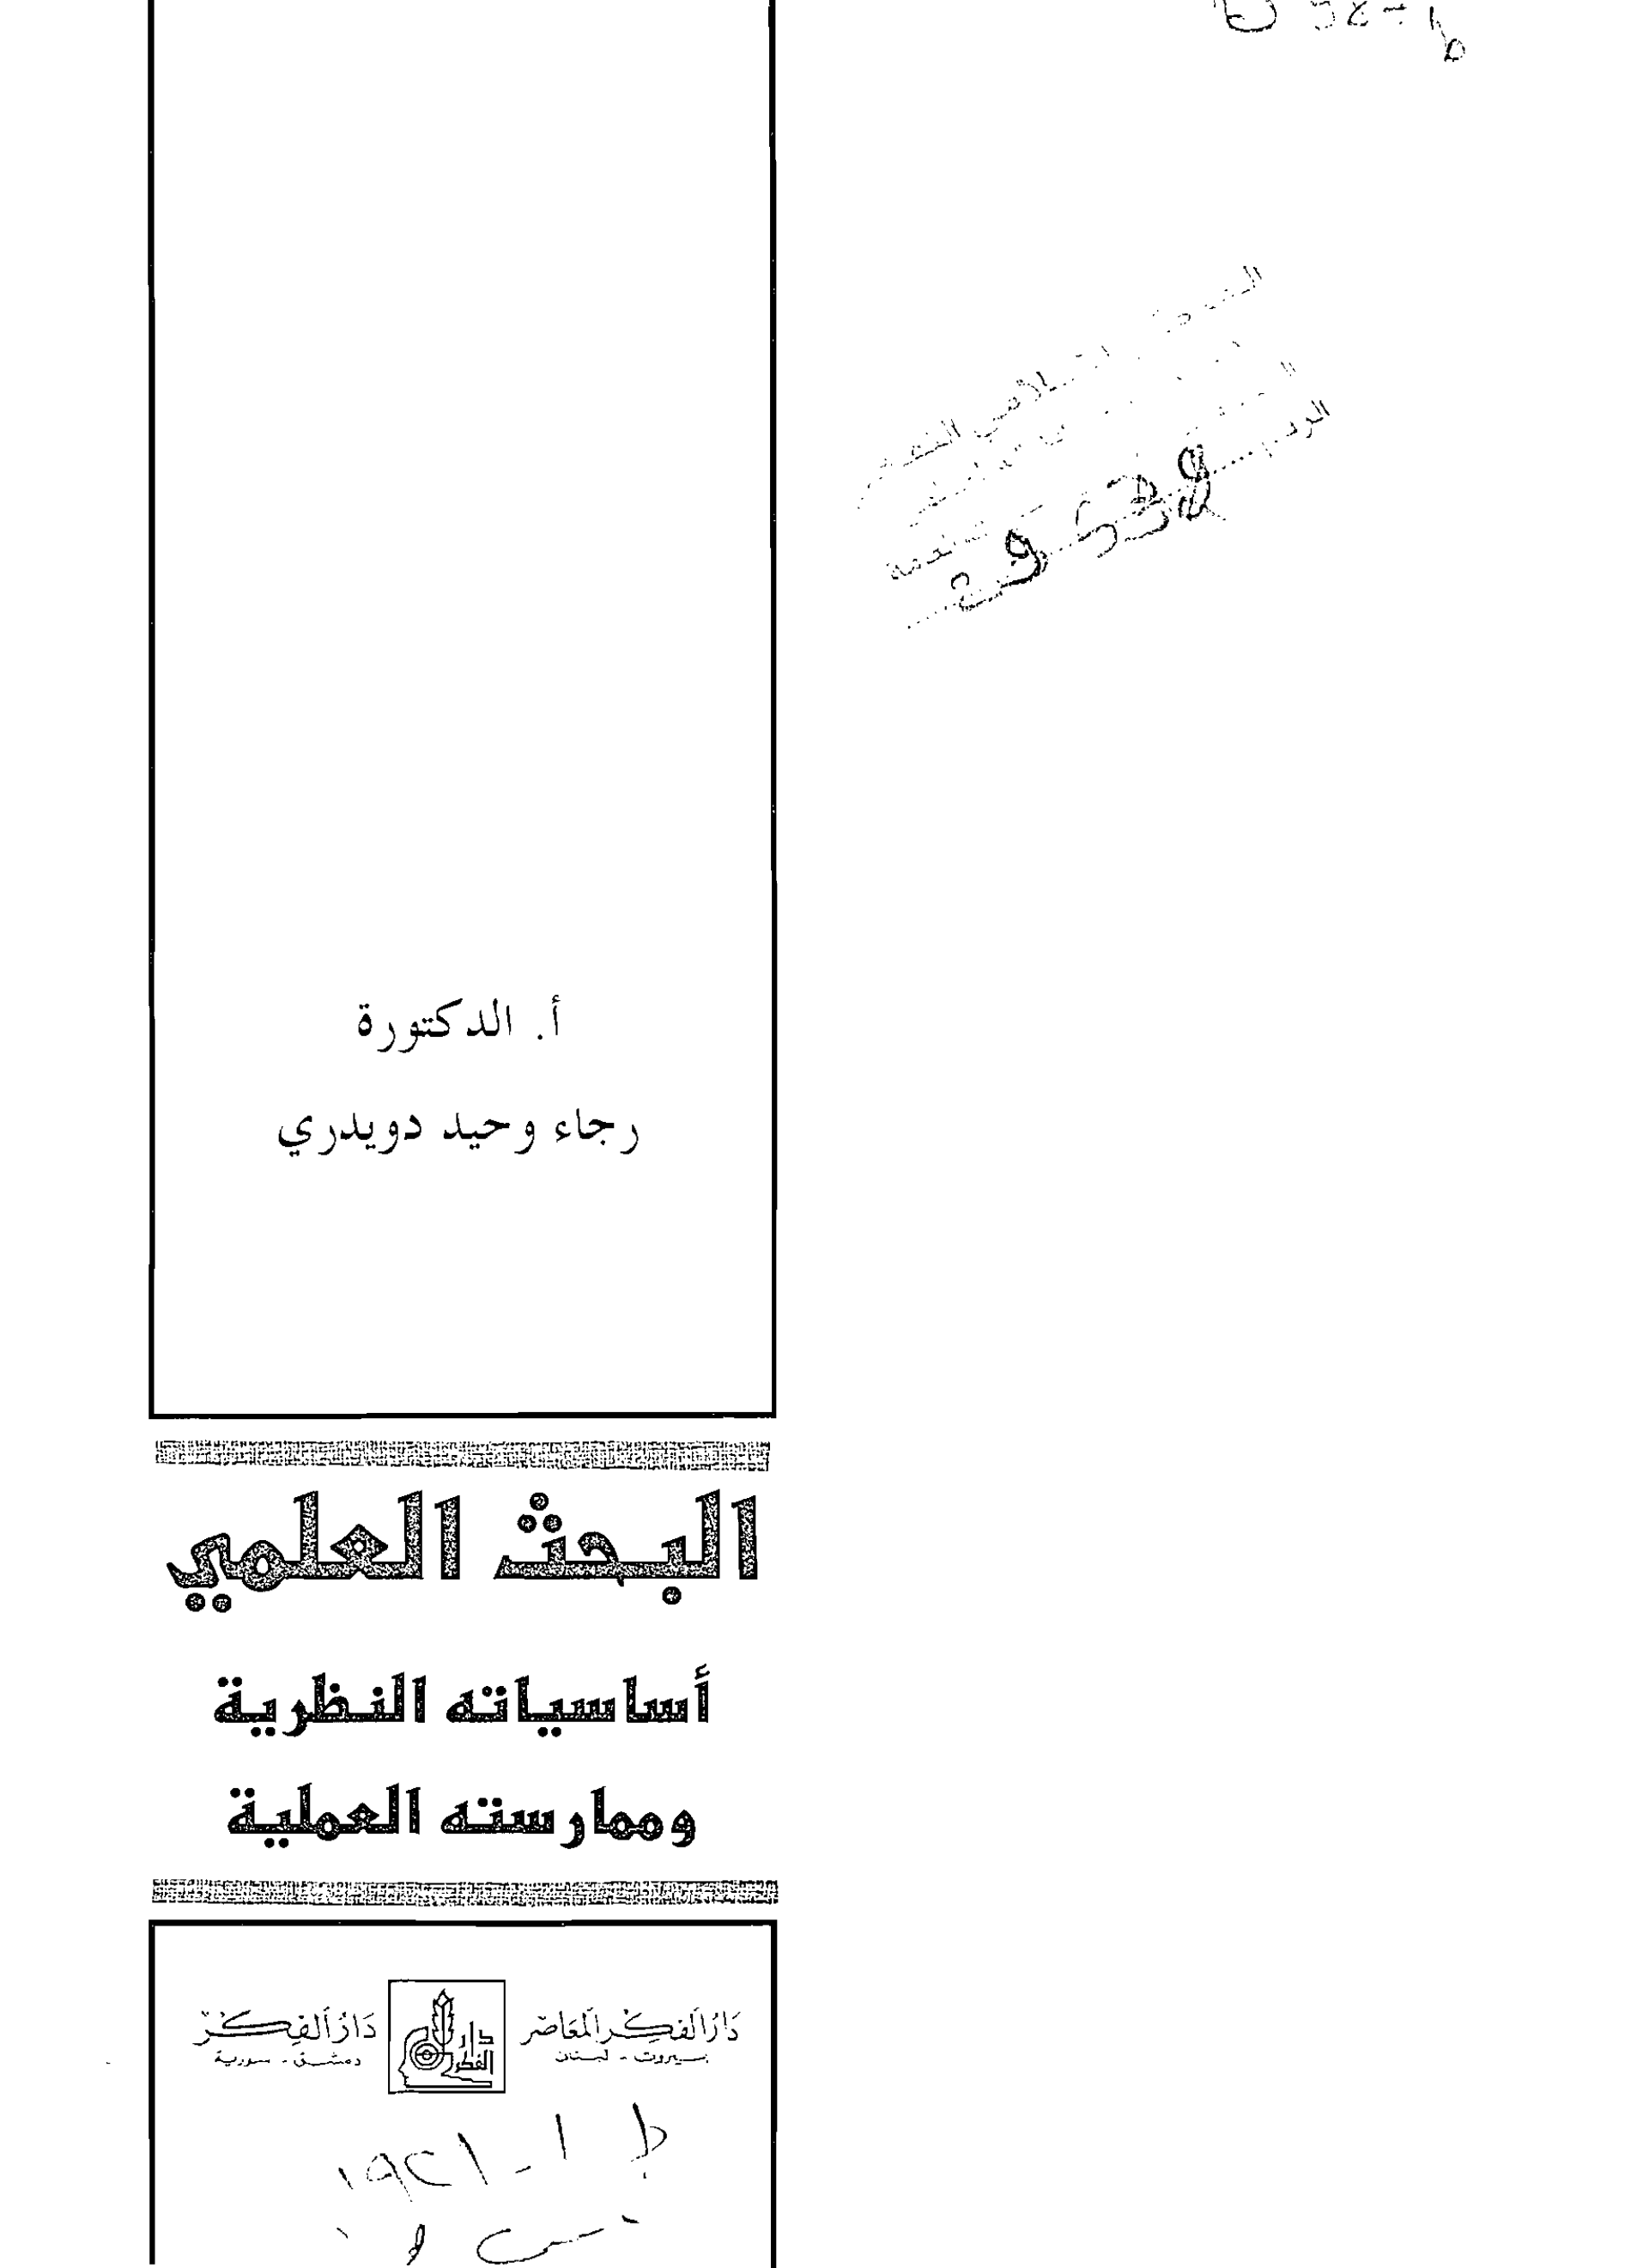 29538
أ. الدكتورة
رجاء وحيد دويدري
البحث العلمي
أساسياته النظرية
وممارسته العملية
دَارُ الفِكْرِ المُعَاصِر
بيروت - لبنان
دار الفكر
دَارُ الفِكْرِ
دمشق - سورية